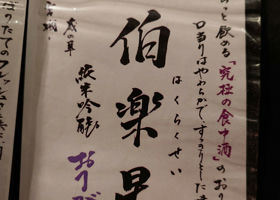 っと飲める「究極の食中酒」のおり
口当りはやわらかで、すっきりとした
はくらくせい
伯楽星
純米吟醸 おりが
蔵の華
ぼりたてのフレッシュな